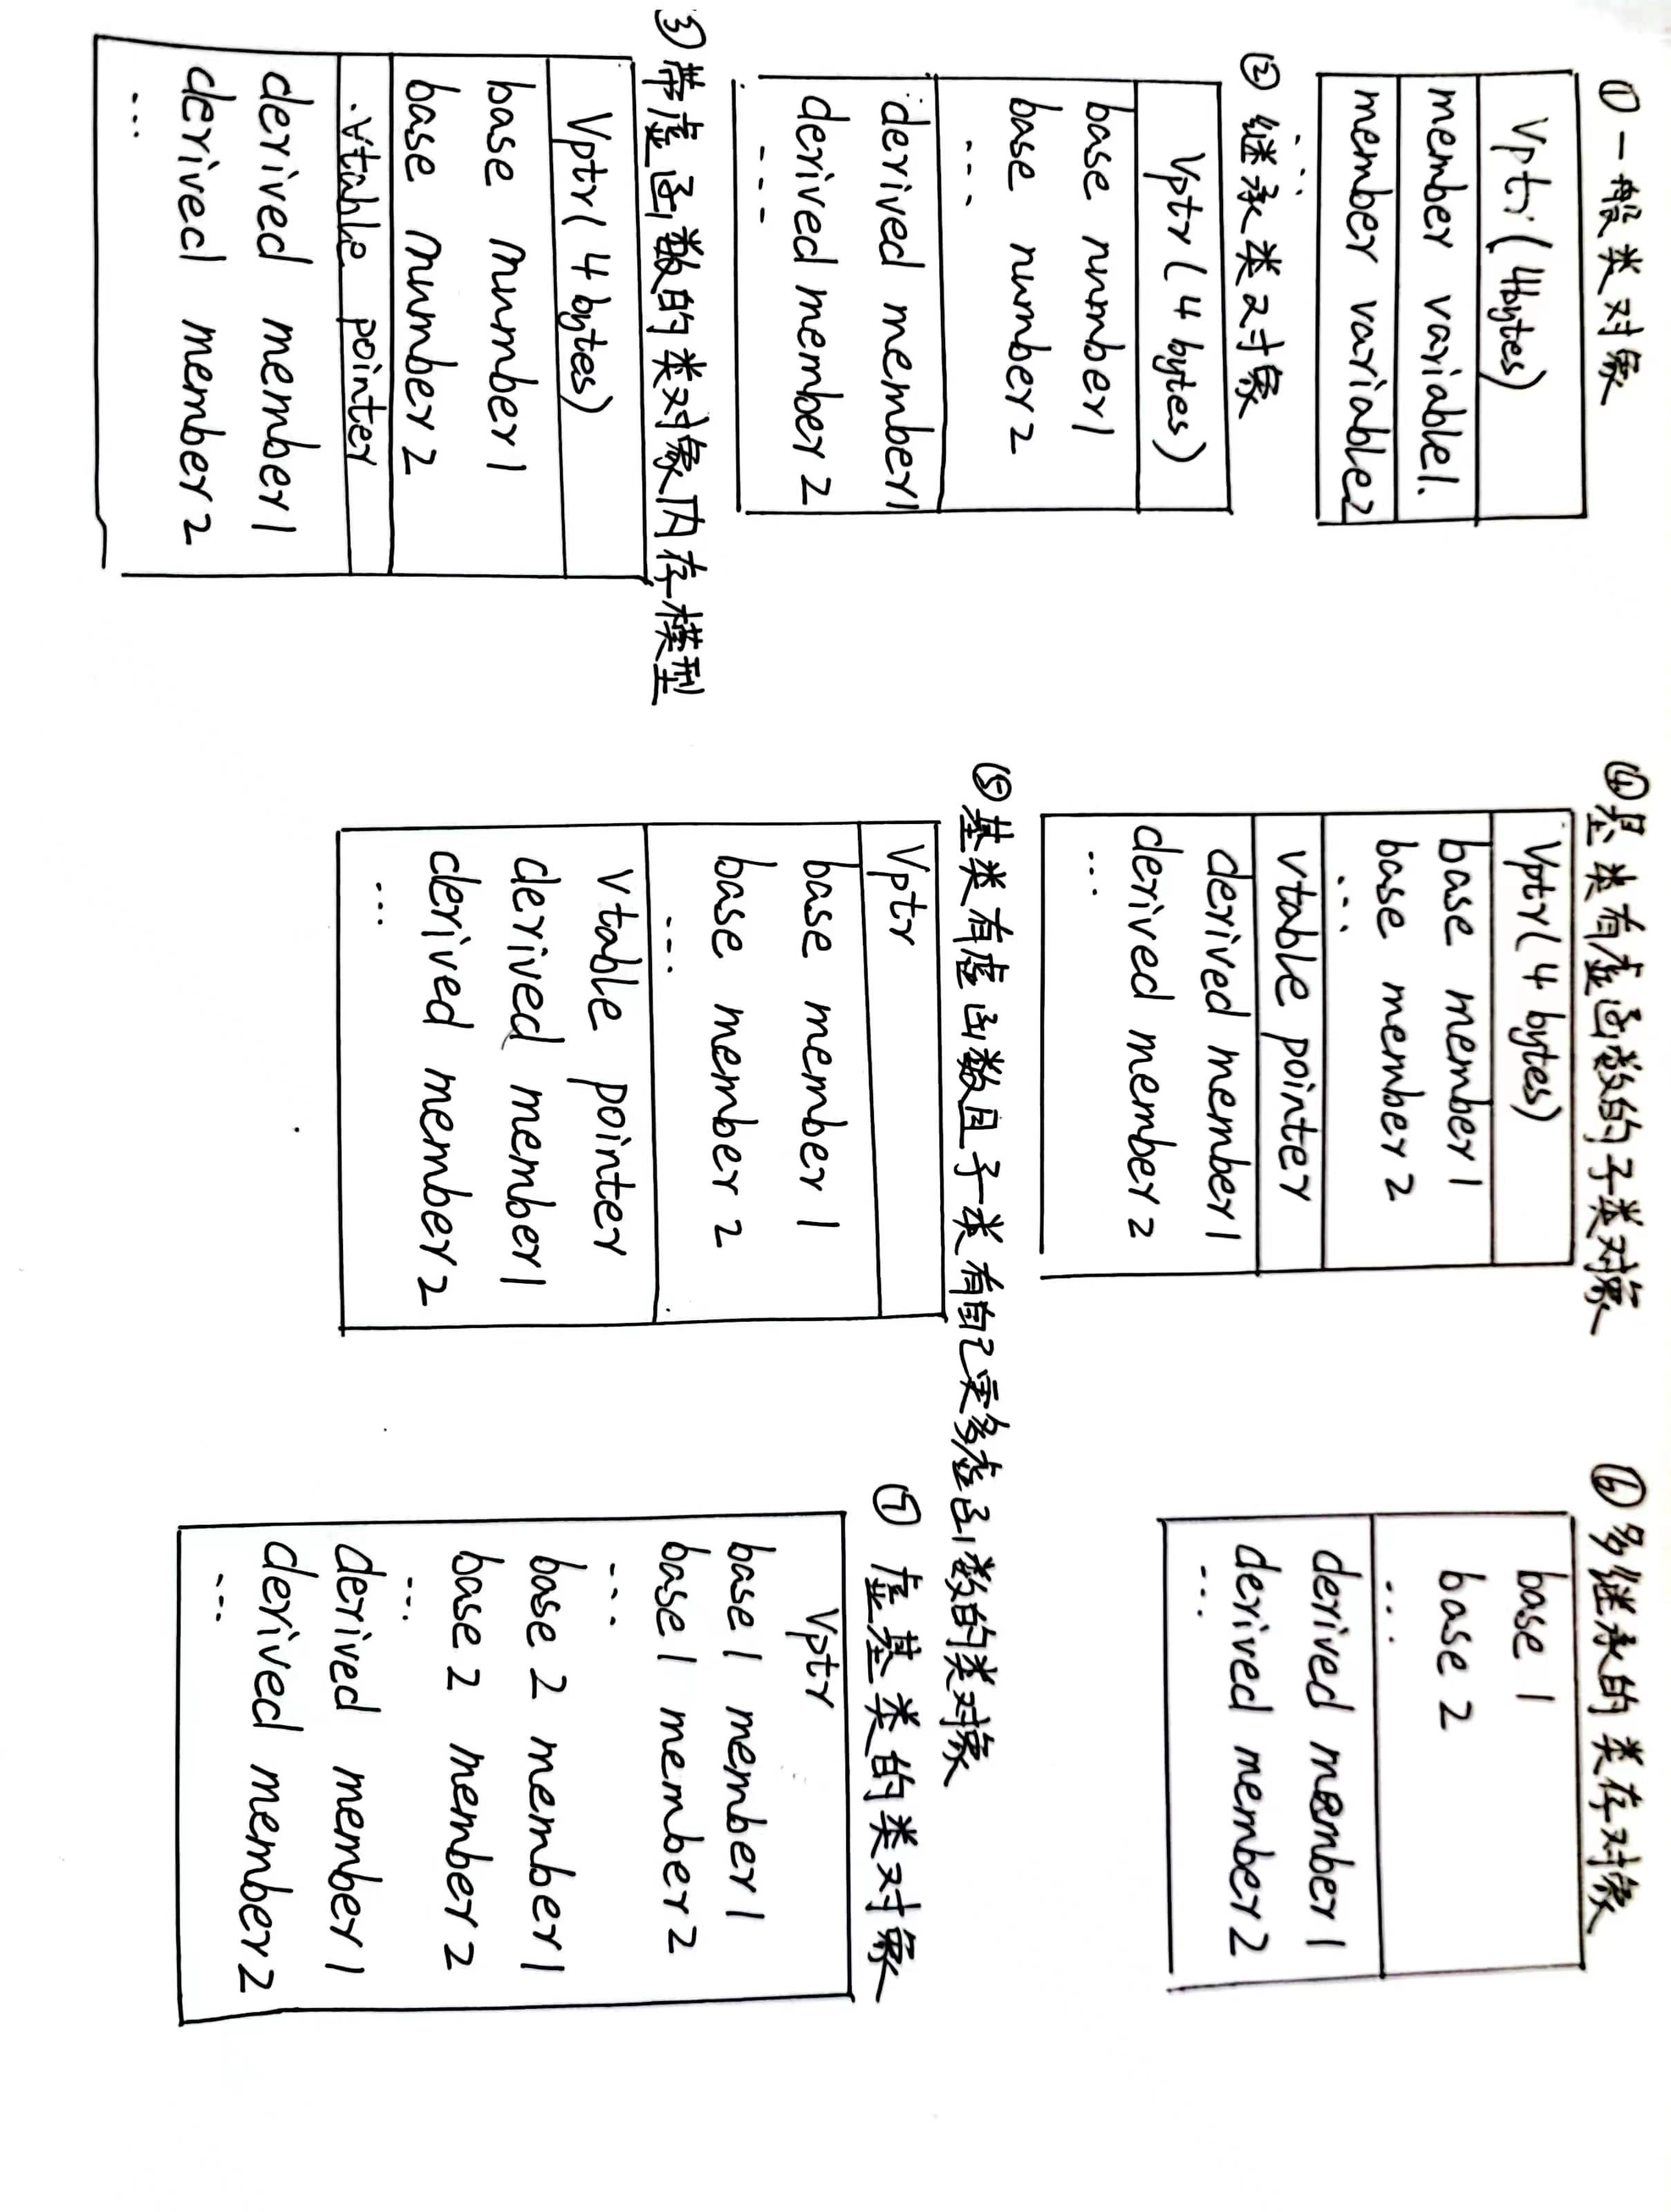 ① 一般类对象
Vptr(4bytes)
member variable1.
member variable2
② 继承类对象
Vptr(4 bytes)
base number1
base number2
...
derived member1
derived member2
...
③ 带虚函数的类对象内存模型
Vptr(4bytes)
base number1
base number2
vtable pointer
derived member1
derived member2
...
④ 基类有虚函数的子类对象
Vptr(4 bytes)
base member1
base member2
...
vtable pointer
derived member1
derived member2
...
⑤ 基类有虚函数且子类有自己更多虚函数的类对象
Vptr
base member1
base member2
...
Vtable pointer
derived member1
derived member2
...
⑥ 多继承的类存对象
base 1
base 2
...
derived member1
derived member2
...
⑦ 虚基类的类对象
Vptr
base1 member1
base1 member2
...
base2 member1
base2 member2
...
derived member1
derived member2
...